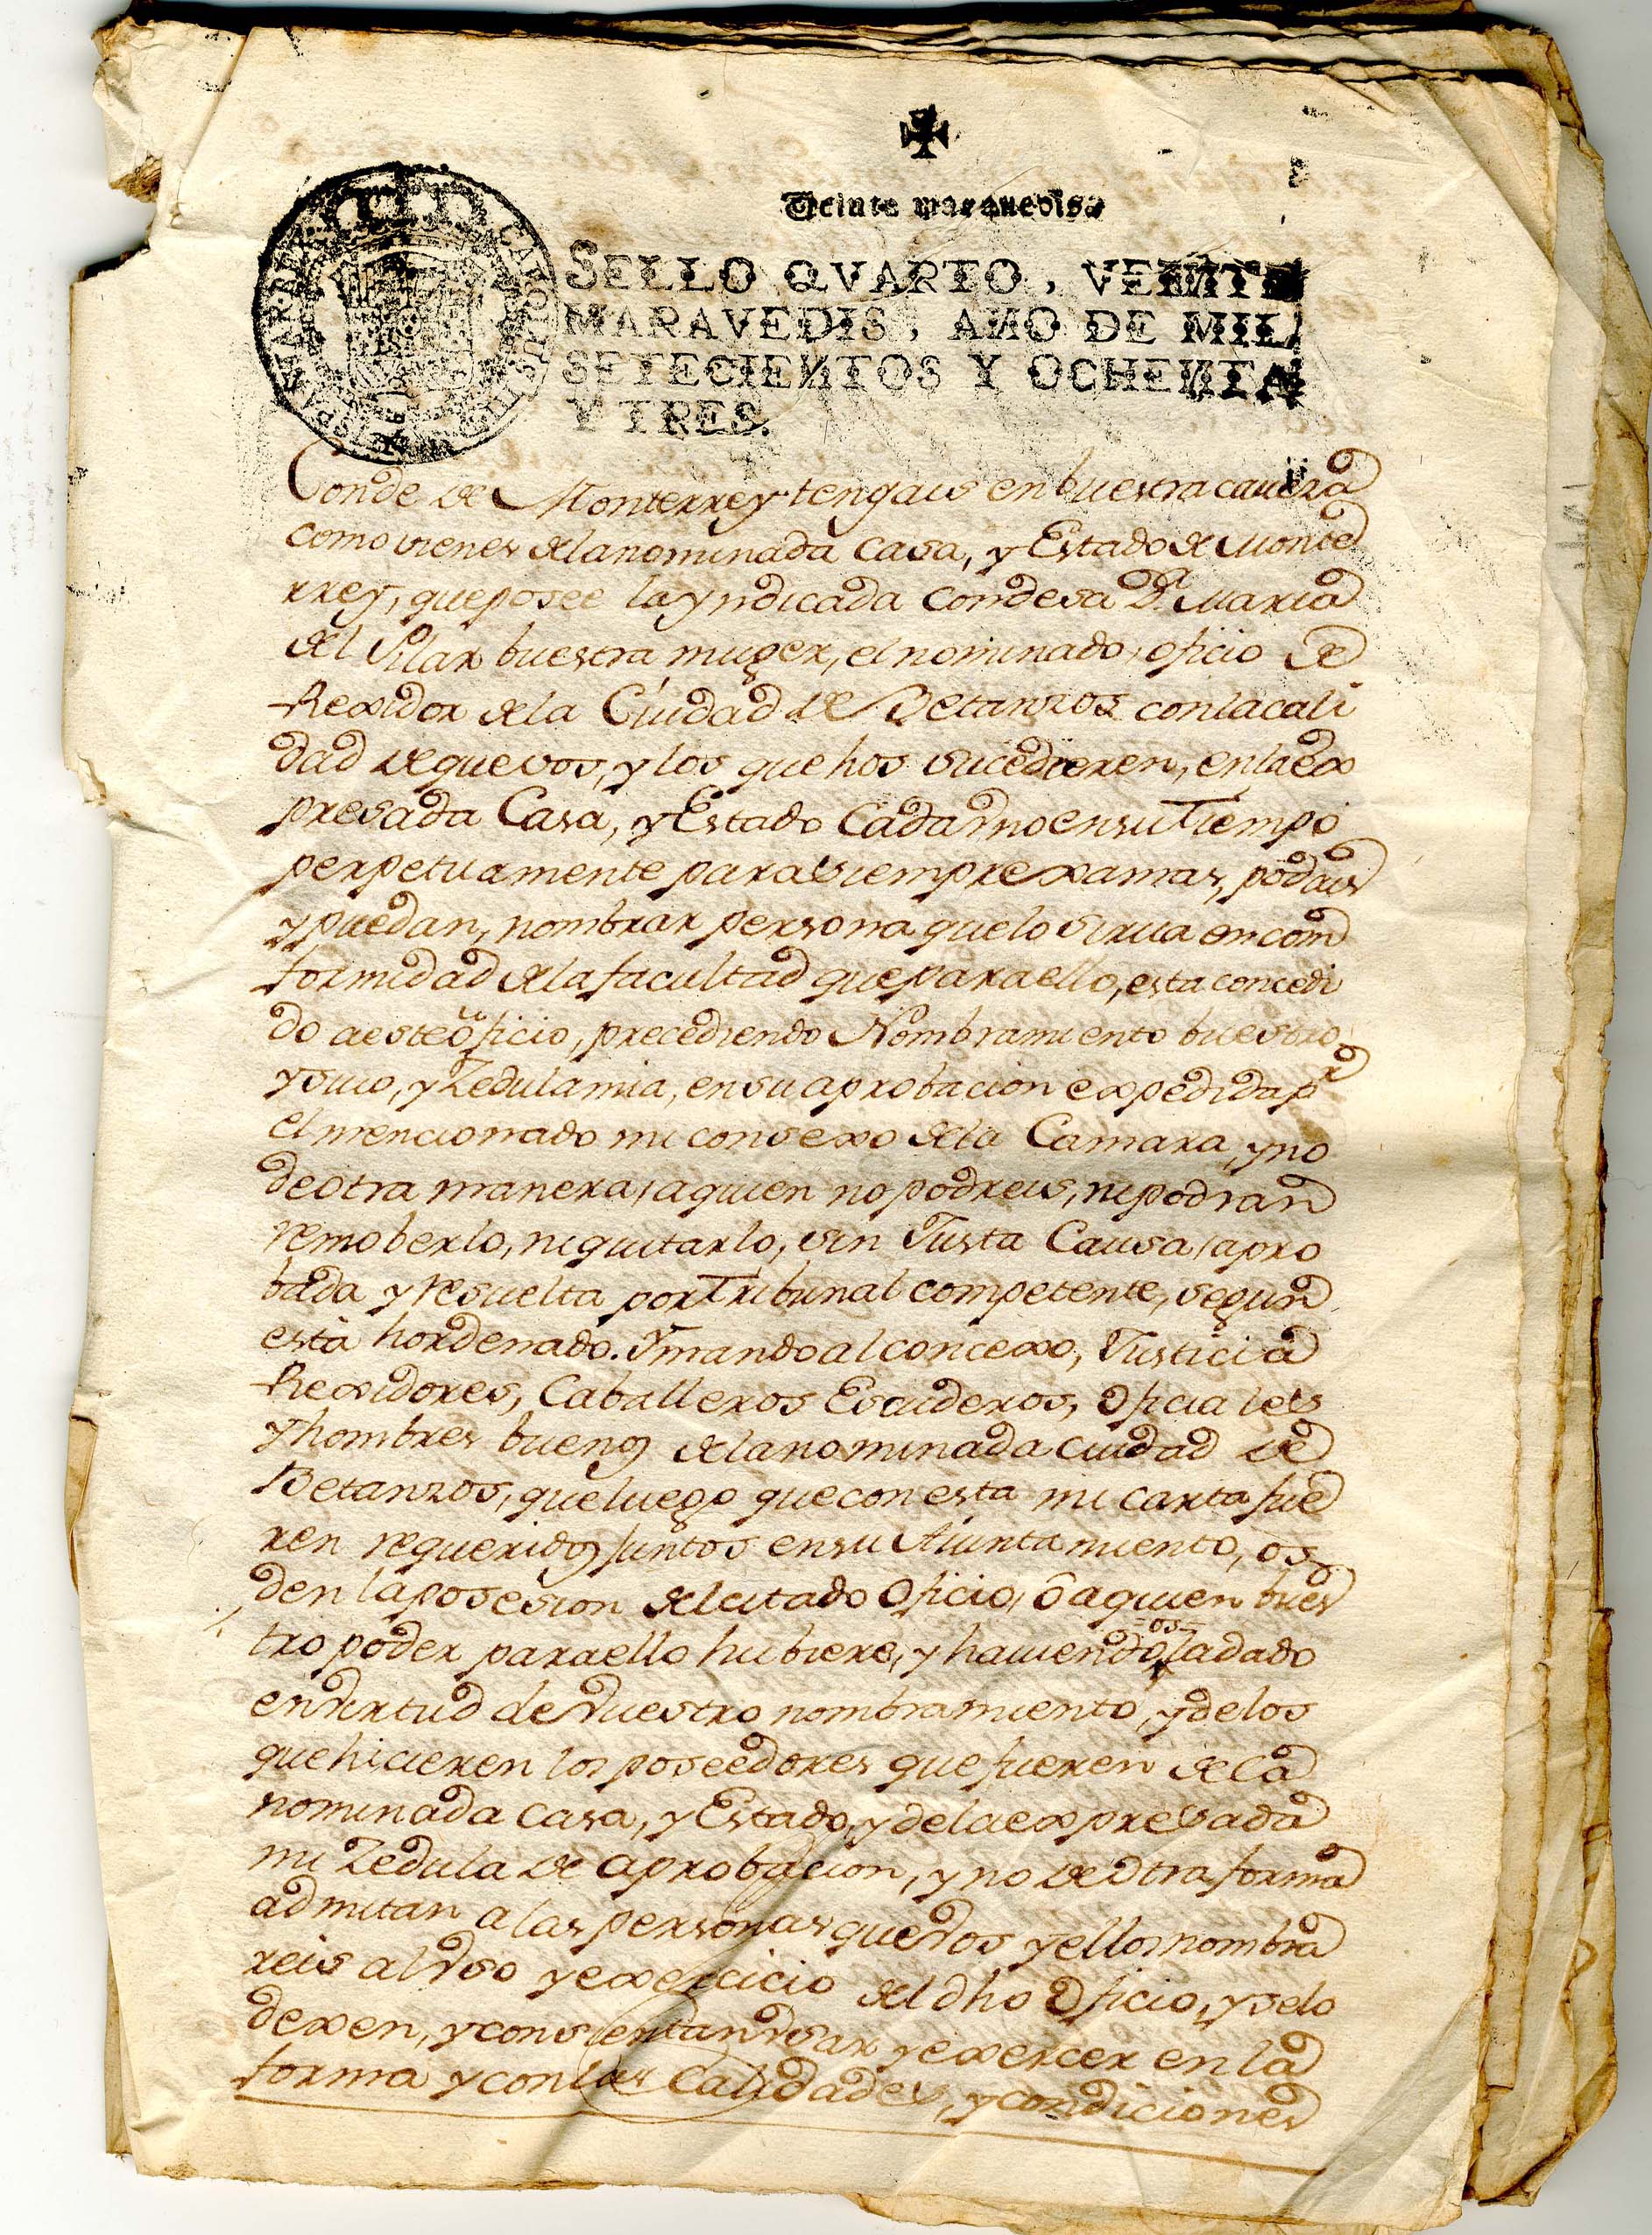 Veinte marauedis.
SELLO QVARTO, VEINTE
MARAVEDIS, AÑO DE MIL
SETECIENTOS Y OCHENTA
Y TRES.
Conde de Monterrey tengais en buestra caveza
como vienes de la nominada Casa, y Estado de Monte
rrey, que posee la yndicada Condesa Dª. Maria
del Pilar buestra muger, el nominado, oficio de
Rexidor de la Ciudad de Betanzos con la cali
dad de que vos, y los que hos sucedieren, en la ex
presada Casa, y Estado Cada vno en su Tiempo
perpetuamente para siempre xamas, podais
y puedan, nombrar persona que lo sirua en com
formidad de la facultad que para ello, esta concedi
do a este oficio, precediendo Nombramiento buestro
y suio, y Zedula mia, en su aprobacion expedida pr
el mencionado mi consexo de la Camara, y no
de otra manera, a quien no podreis, ni podran
remoberlo, ni quitarlo, sin Justa Causa, apro
bada y resuelta por Tribunal competente, segun
está hordenado. Y mando al concexo, Justicia
Rexidores, Caballeros Escuderos, Oficiales
y hombres buenos de la nominada Ciudad de
Betanzos, que luego que con esta mi carta fue
ren requeridos juntos en su Aiuntamiento, os
den la posesion del citado Oficio, ó a quien bues
tro poder para ello hubiere, y haviendoos la dado
en virtud de vuestro nombramiento, y de los
que hicieren los poseedores que fueren de la
nominada Casa, y Estado, y de la expresada
mi Zedula de aprobacion, y no de otra forma
admitan a las personas que vos y ellos nombra
reis al vso y exercicio del dho Oficio, y se lo
dexen, y consientan vsar y exercer en la
forma y con las Calidades, y condiciones